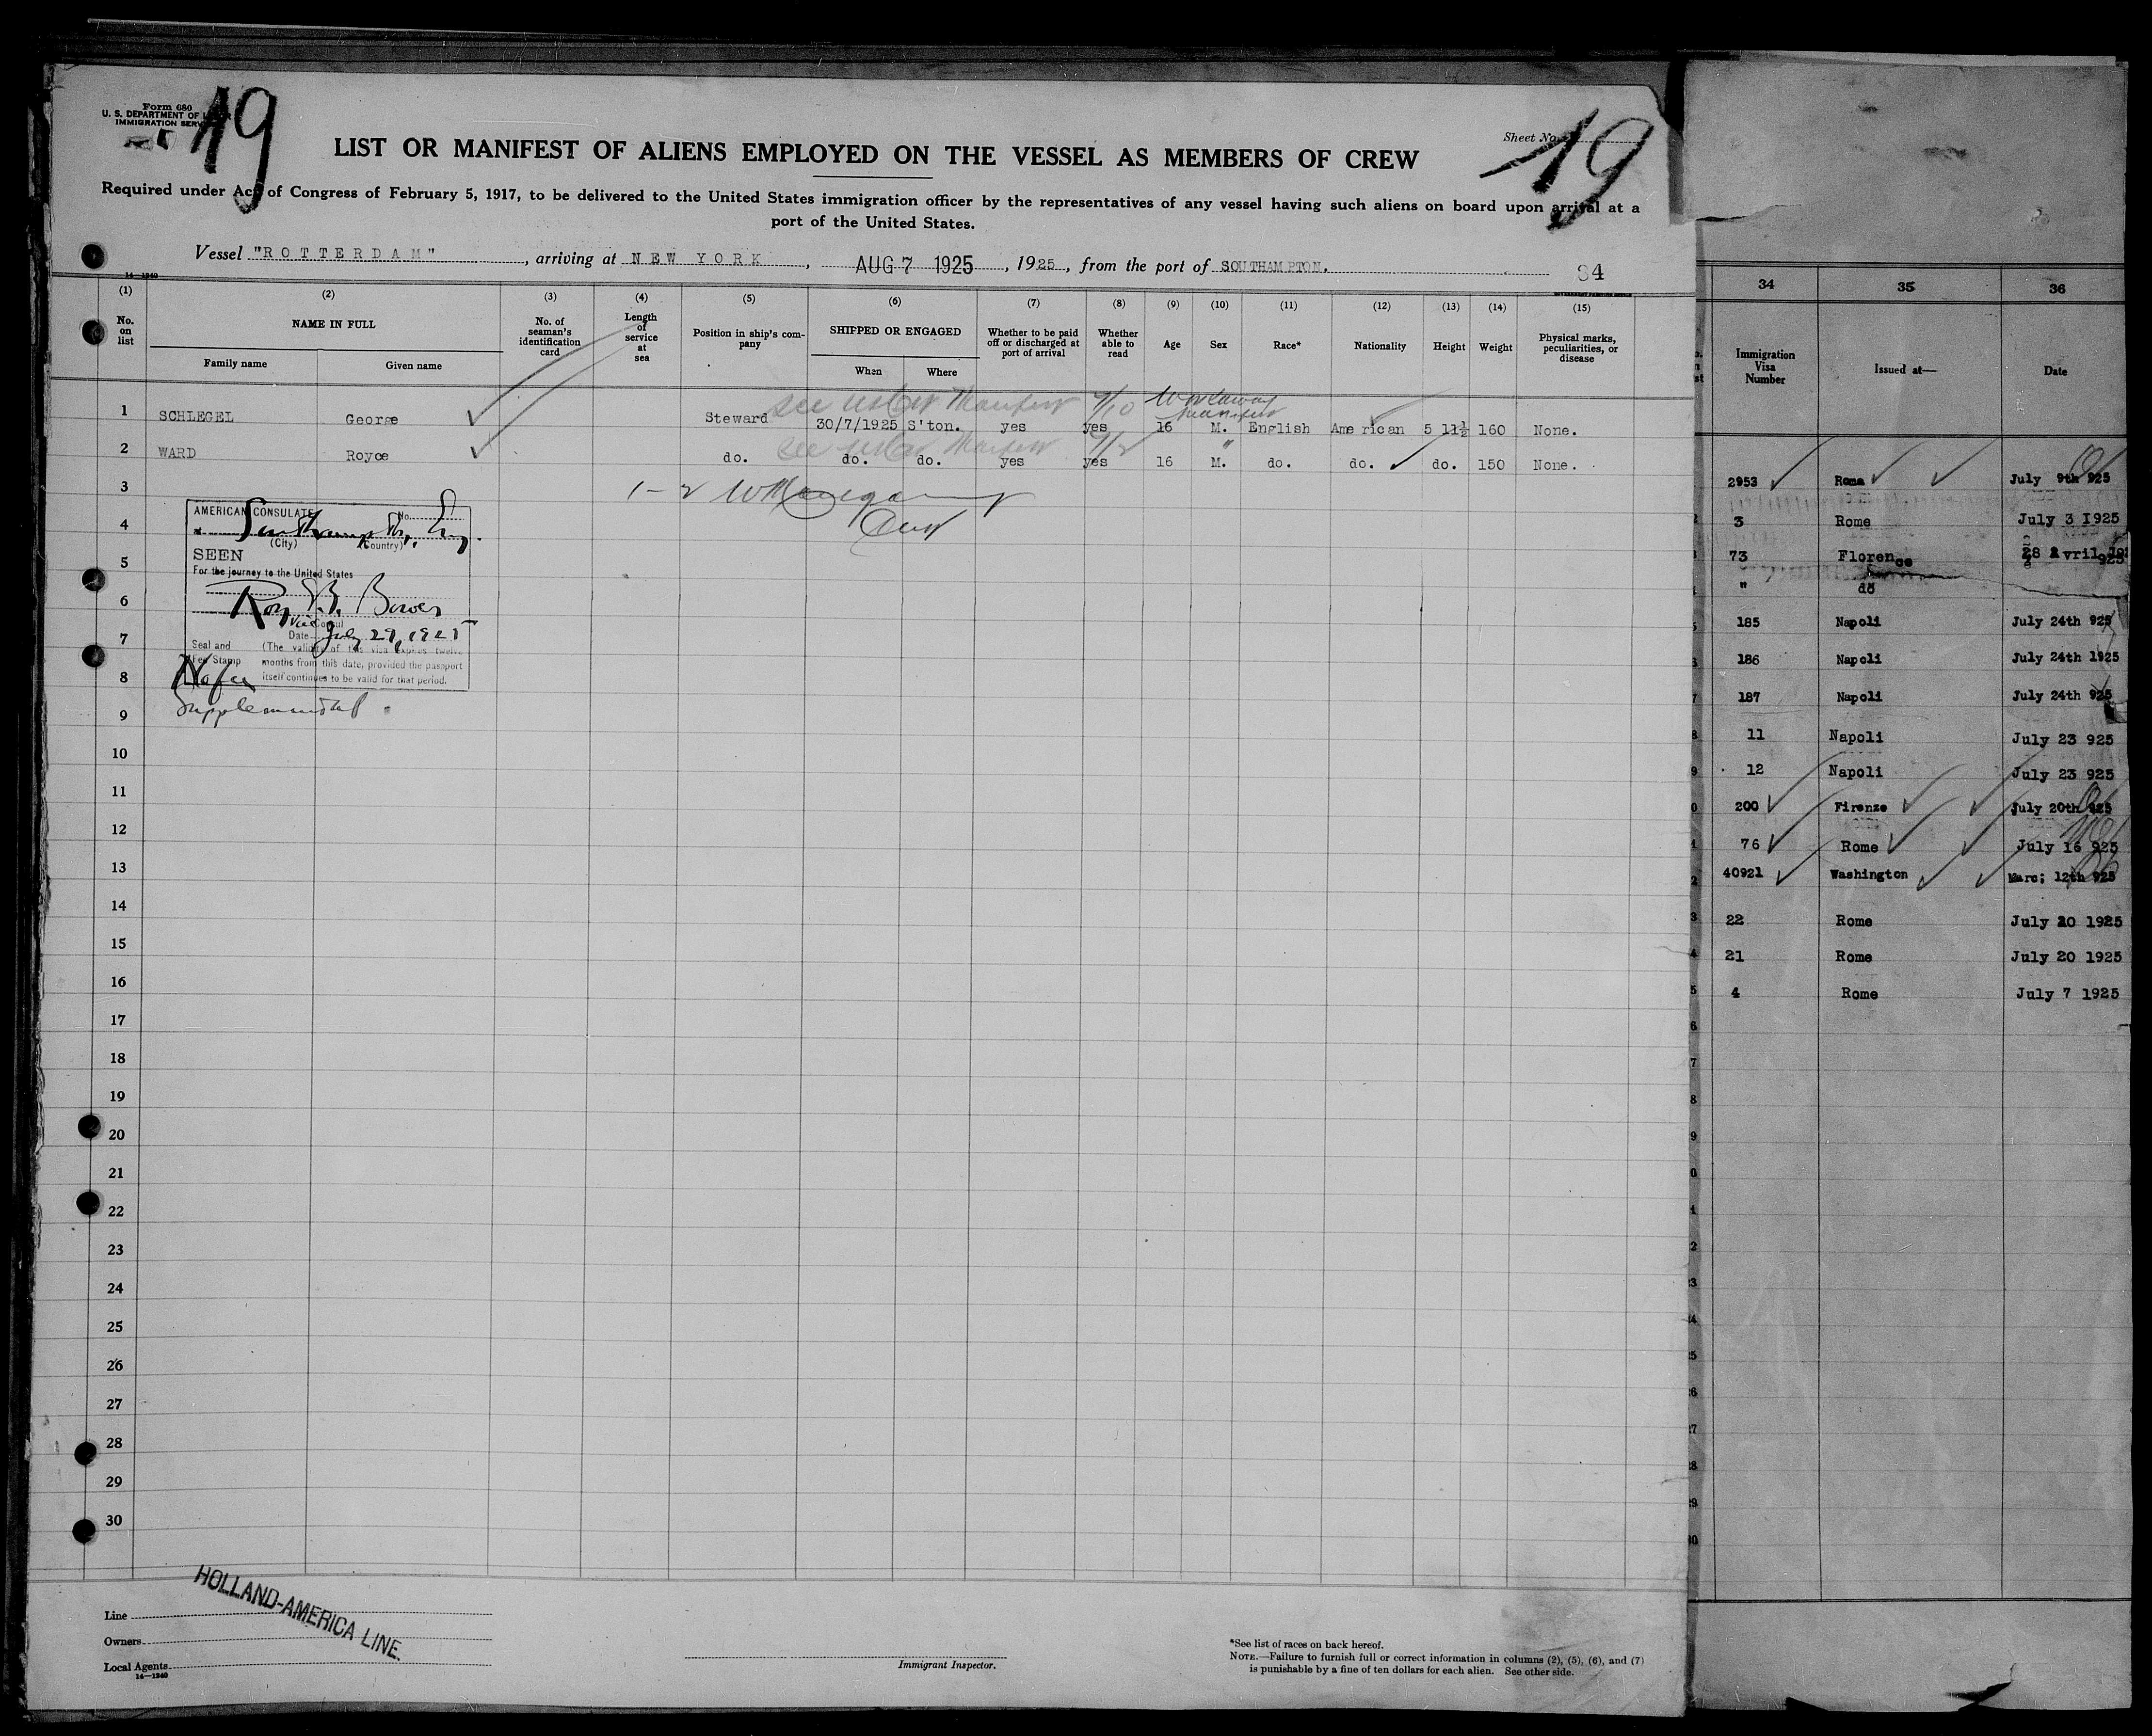 Form 680
U. S. DEPARTMENT OF
IMMIGRATION SERV
19
Sheet No. 19
LIST OR MANIFEST OF ALIENS EMPLOYED ON THE VESSEL AS MEMBERS OF CREW
Required under Act of Congress of February 5, 1917, to be delivered to the United States immigration officer by the representatives of any vessel having such aliens on board upon arrival at a
port of the United States.
Vessel "ROTTERDAM", arriving at NEW YORK, AUG 7 1925, 1925, from the port of SOUTHAMPTON.
84
14—1240
(1) (2) (3) (4) (5) (6) (7) (8) (9) (10) (11) (12) (13) (14) (15)
No. on list
NAME IN FULL
Family name
Given name
No. of seaman's identification card
Length of service at sea
Position in ship's company
SHIPPED OR ENGAGED
When
Where
Whether to be paid off or discharged at port of arrival
Whether able to read
Age
Sex
Race*
Nationality
Height
Weight
Physical marks, peculiarities, or disease
see Manifest 9/10 Workaway manifest
1 SCHLEGEL George Steward 30/7/1925 S'ton. yes yes 16 M. English American 5 11½ 160 None.
see Manifest 9/2 "
2 WARD Royce do. do. do. yes yes 16 M. do. do. do. 150 None.
3
1-2
4
5
6
7
8
9
10
11
12
13
14
15
16
17
18
19
20
21
22
23
24
25
26
27
28
29
30
AMERICAN CONSULATE
No.
Southampton, Eng.
(City) (Country)
SEEN
For the journey to the United States
Roy Bower
Vice Consul
Date July 29, 1925
Seal and Fee Stamp
(The validity of this visa expires twelve
months from this date, provided the passport
itself continues to be valid for that period.
No fee
Supplemental
Line
Owners
Local Agents
14—1240
HOLLAND-AMERICA LINE.
Immigrant Inspector.
*See list of races on back hereof.
NOTE.—Failure to furnish full or correct information in columns (2), (5), (6), and (7)
is punishable by a fine of ten dollars for each alien. See other side.
34 35 36
Immigration Visa Number
Issued at—
Date
2953 Roma July 9th 925
3 Rome July 3 1925
73 Florence
" do
185 Napoli July 24th 925
186 Napoli July 24th 1925
187 Napoli July 24th 925
11 Napoli July 23 925
12 Napoli July 23 925
200 Firenze July 20th 925
76 Rome July 16 925
40921 Washington Marc; 12th 925
22 Rome July 20 1925
21 Rome July 20 1925
4 Rome July 7 1925